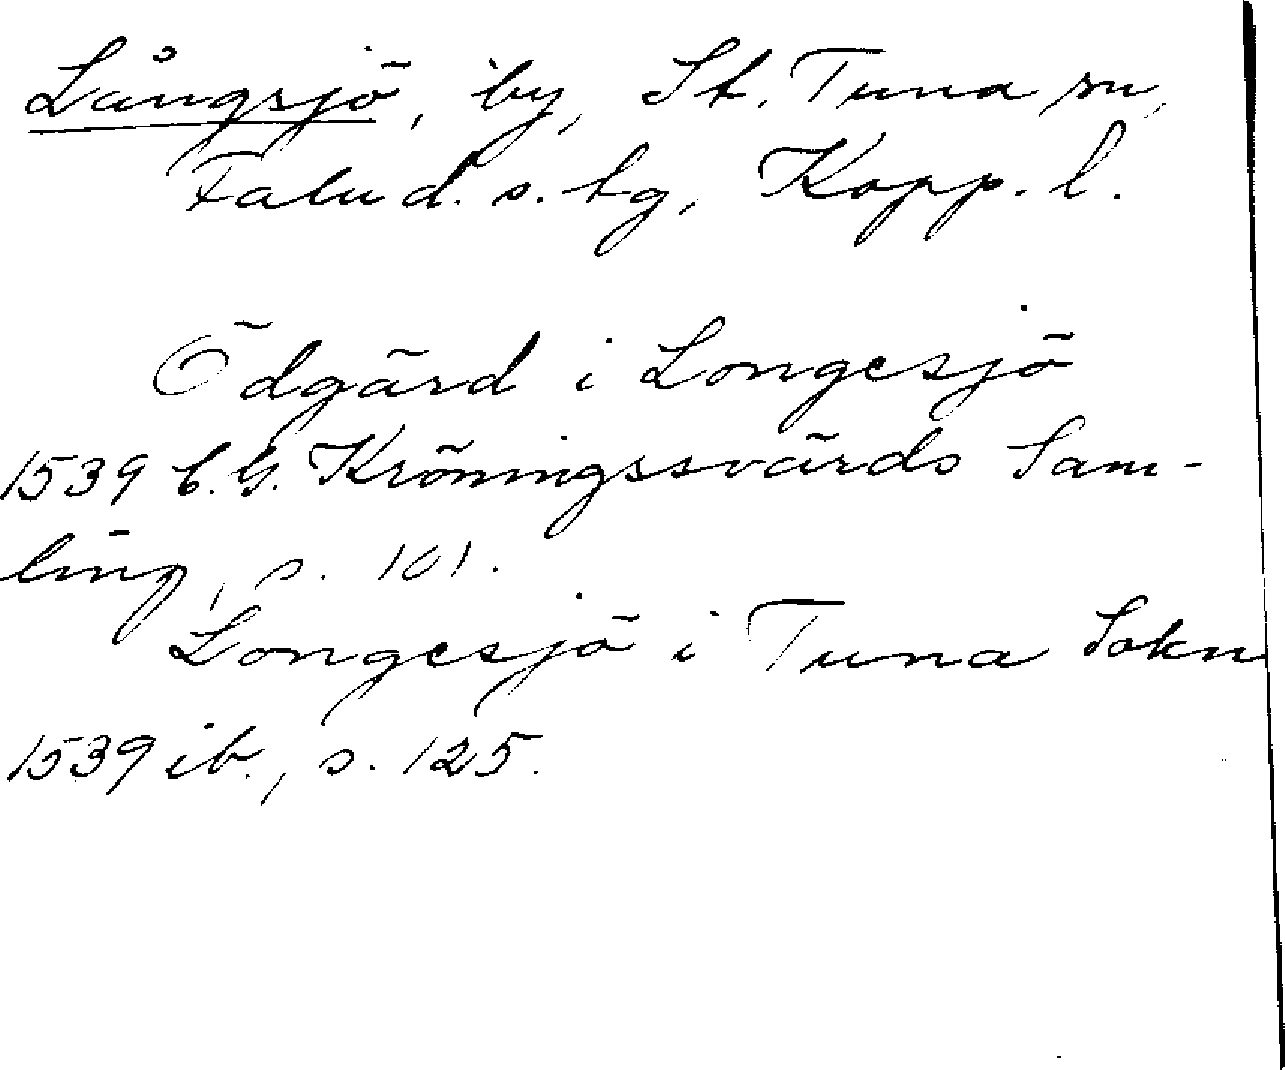 Långsjö, by, St. Tuna sn,
Falu d. s. tg, Kopp. l.
Ödgärd i Longesjö
1539 C. G. Kröningssvärds Sam-
ling, s. 101.
Longesjö i Tuna Sokn
1539 ib., s. 125.